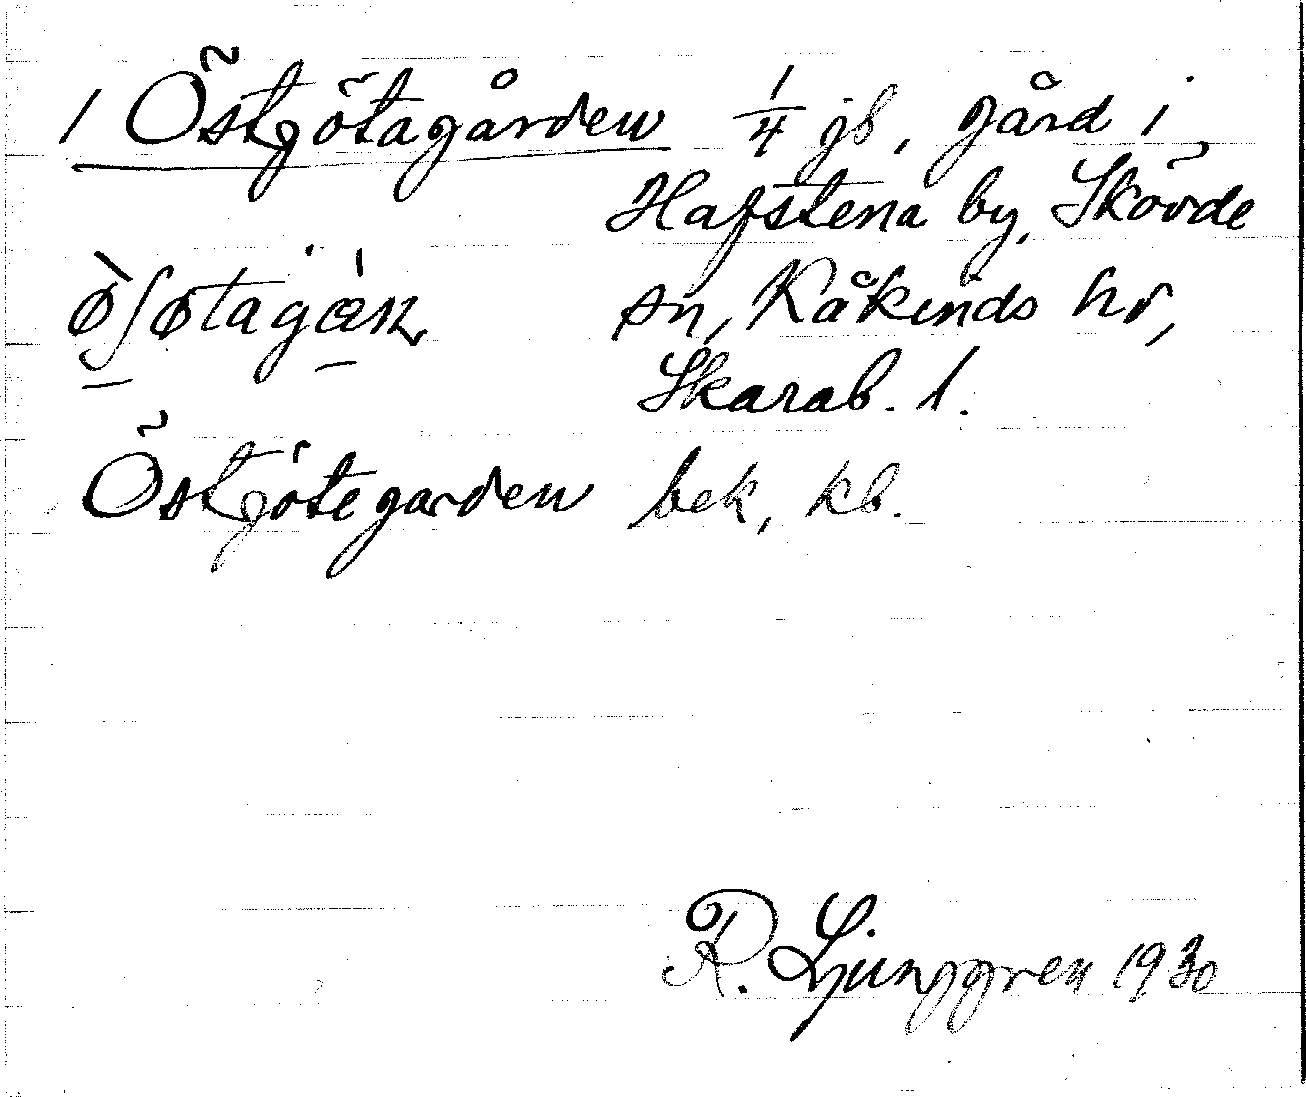 1 Östgötagården 1/4 jb, gård i
Hafstena by, Skövde
sn, Kåkinds hd,
Skarab. l.
Östgötegarden bek, kb.
R. Ljunggren 1930